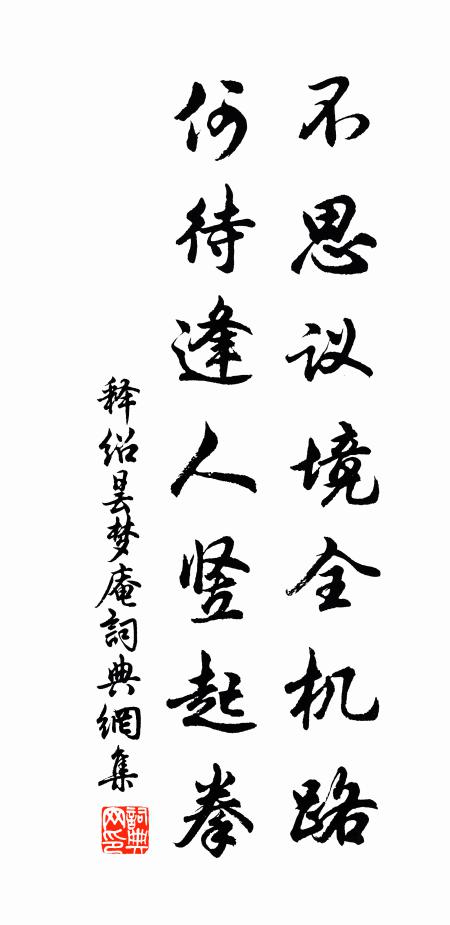 不思议境全机路
何待逢人竖起拳
释绍昙梦庵詞典網集
詞典
网印